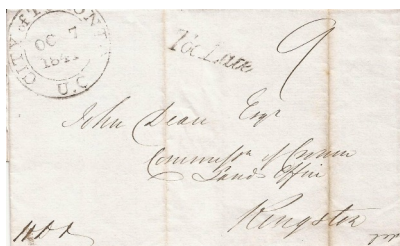 CITY of TORONTO
OC 7
1841
U.C
Too Late
9
John Dean Esqr
Commissr of Crown
Lands Office
Kingston